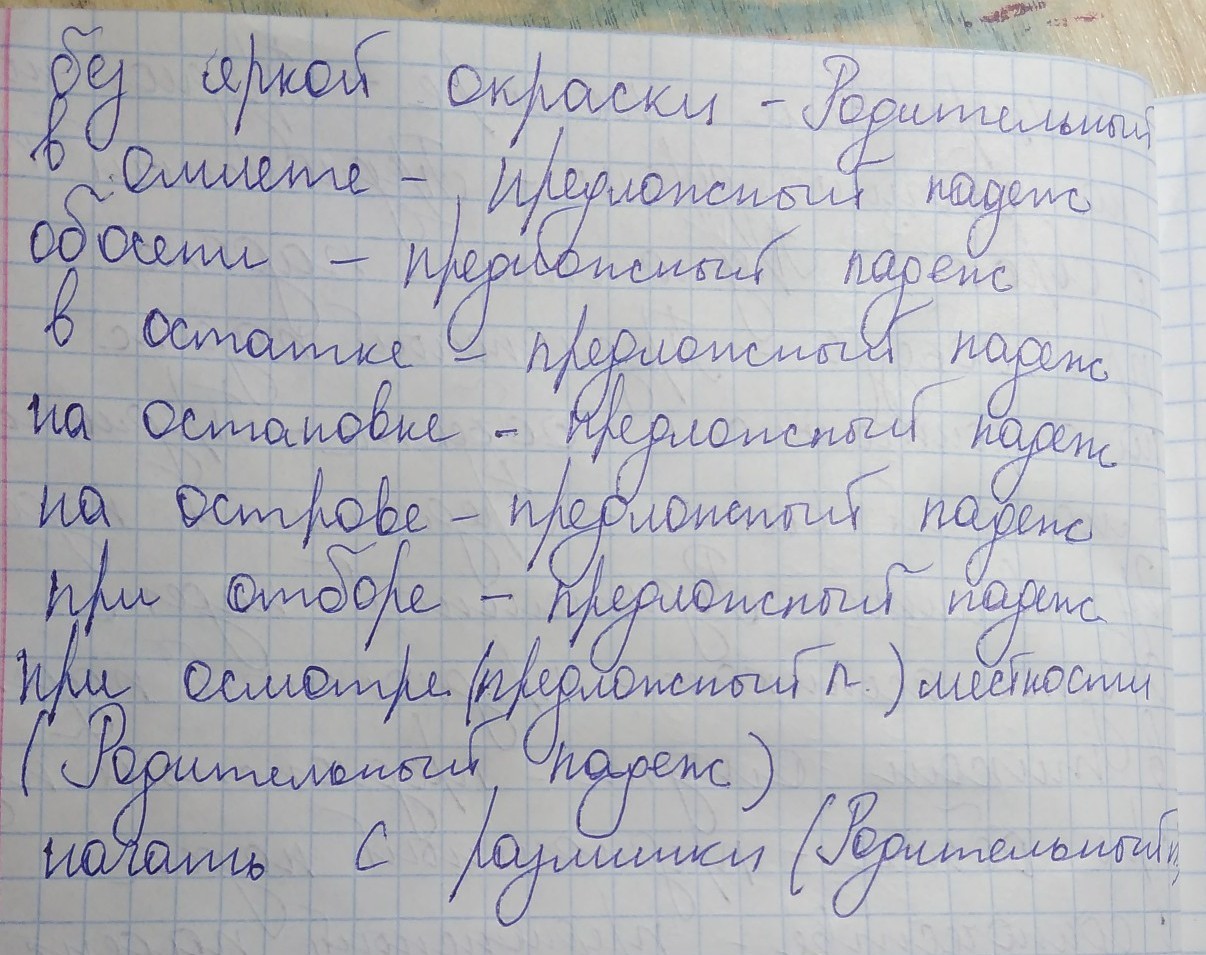 без яркой окраски - Родительный
в омлете - предложный падеж
об осети - предложный падеж
в остатке - предложный падеж
на остановке - предложный падеж
на острове - предложный падеж
при отборе - предложный падеж
при осмотре (предложный п.) местности
(Родительный падеж)
начать с разминки (Родительный п